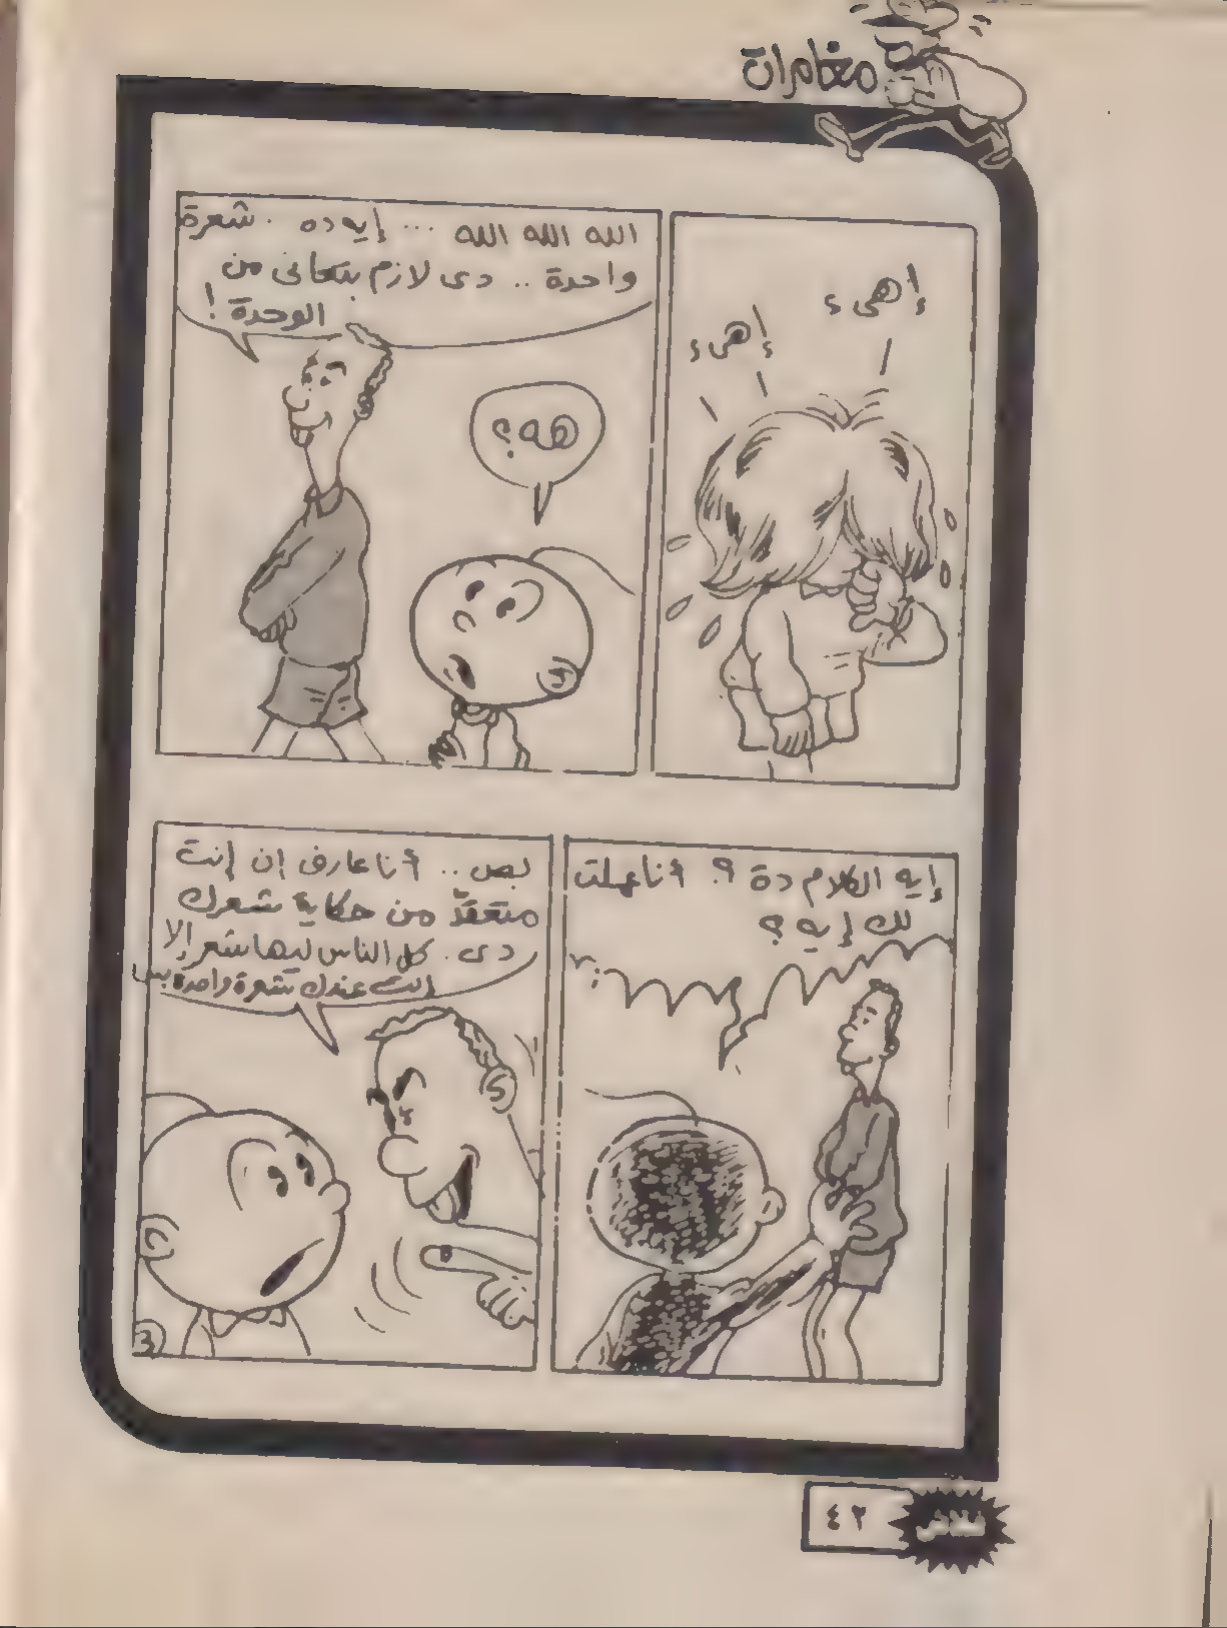 مغامرات
إهىء
إهىء
الله الله الله ... إيه ده . شعرة
واحدة .. دى لازم بتعانى من
الوحدة !
هه ؟
إيه الكلام دة ؟ أنا عملت
لك إيه ؟
بص .. أنا عارف إن إنت
متعقّد من حكاية شعرك
دى . كل الناس ليها شعر إلا
إنت عندك شعرة واحدة بس
فلاش
٤٢